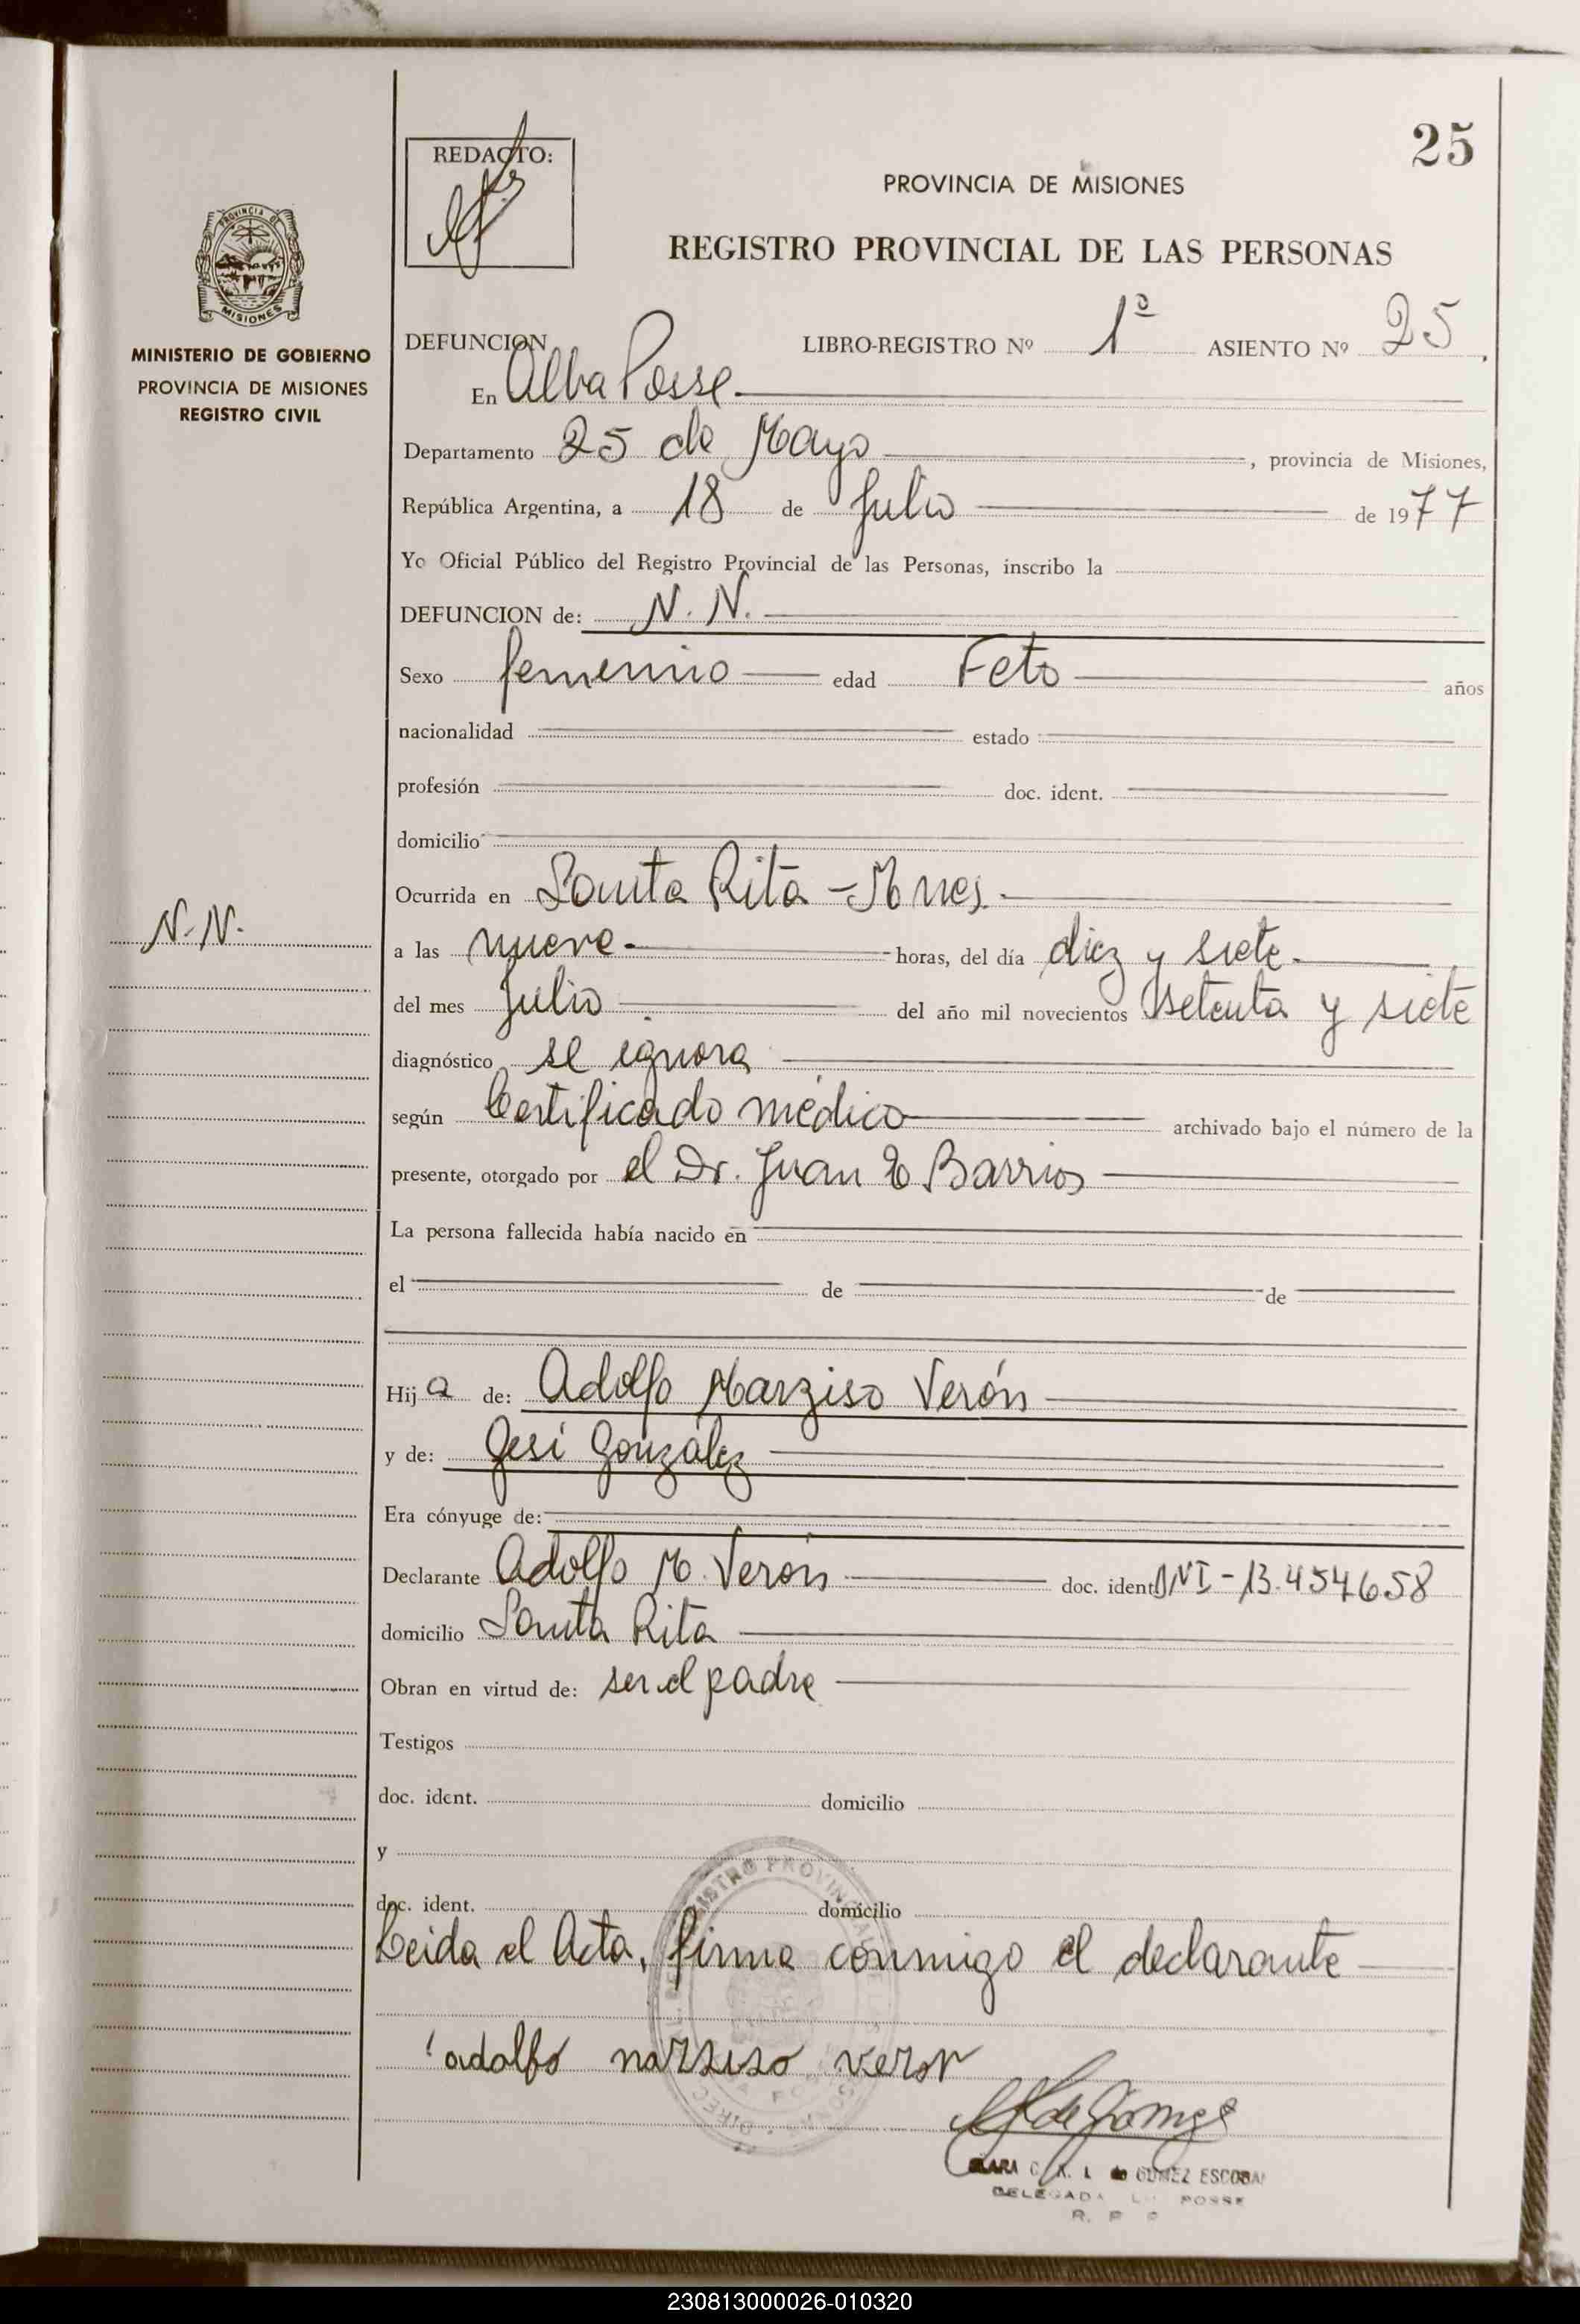 25
REDACTO:
PROVINCIA DE MISIONES
REGISTRO PROVINCIAL DE LAS PERSONAS
PROVINCIA DE
MISIONES
MINISTERIO DE GOBIERNO
PROVINCIA DE MISIONES
REGISTRO CIVIL
DEFUNCION LIBRO-REGISTRO Nº 1º ASIENTO Nº 25
En Alba Posse
Departamento 25 de Mayo, provincia de Misiones,
República Argentina, a 18 de Julio de 1977
Yo Oficial Público del Registro Provincial de las Personas, inscribo la
DEFUNCION de: N. N.
Sexo femenino edad Feto años
nacionalidad estado
profesión doc. ident.
domicilio
Ocurrida en Santa Rita - Mnes.
N. N.
a las nueve horas, del día diez y siete
del mes Julio del año mil novecientos setenta y siete
diagnóstico se ignora
según Certificado médico archivado bajo el número de la
presente, otorgado por el Dr. Juan Barrios
La persona fallecida había nacido en
el de de
Hija de: Adolfo Marziso Verón
y de: Gesi González
Era cónyuge de:
Declarante Adolfo M. Verón doc. ident. DNI - 13.454.658
domicilio Santa Rita
Obran en virtud de: ser el padre
Testigos
doc. ident. domicilio
y
doc. ident. domicilio
Leida el Acta, firma conmigo el declarante
adolfo narsiso veron
de Gomez
DE GOMEZ ESCOBAR
DELEGADA POSSE
R. P P
230813000026-010320